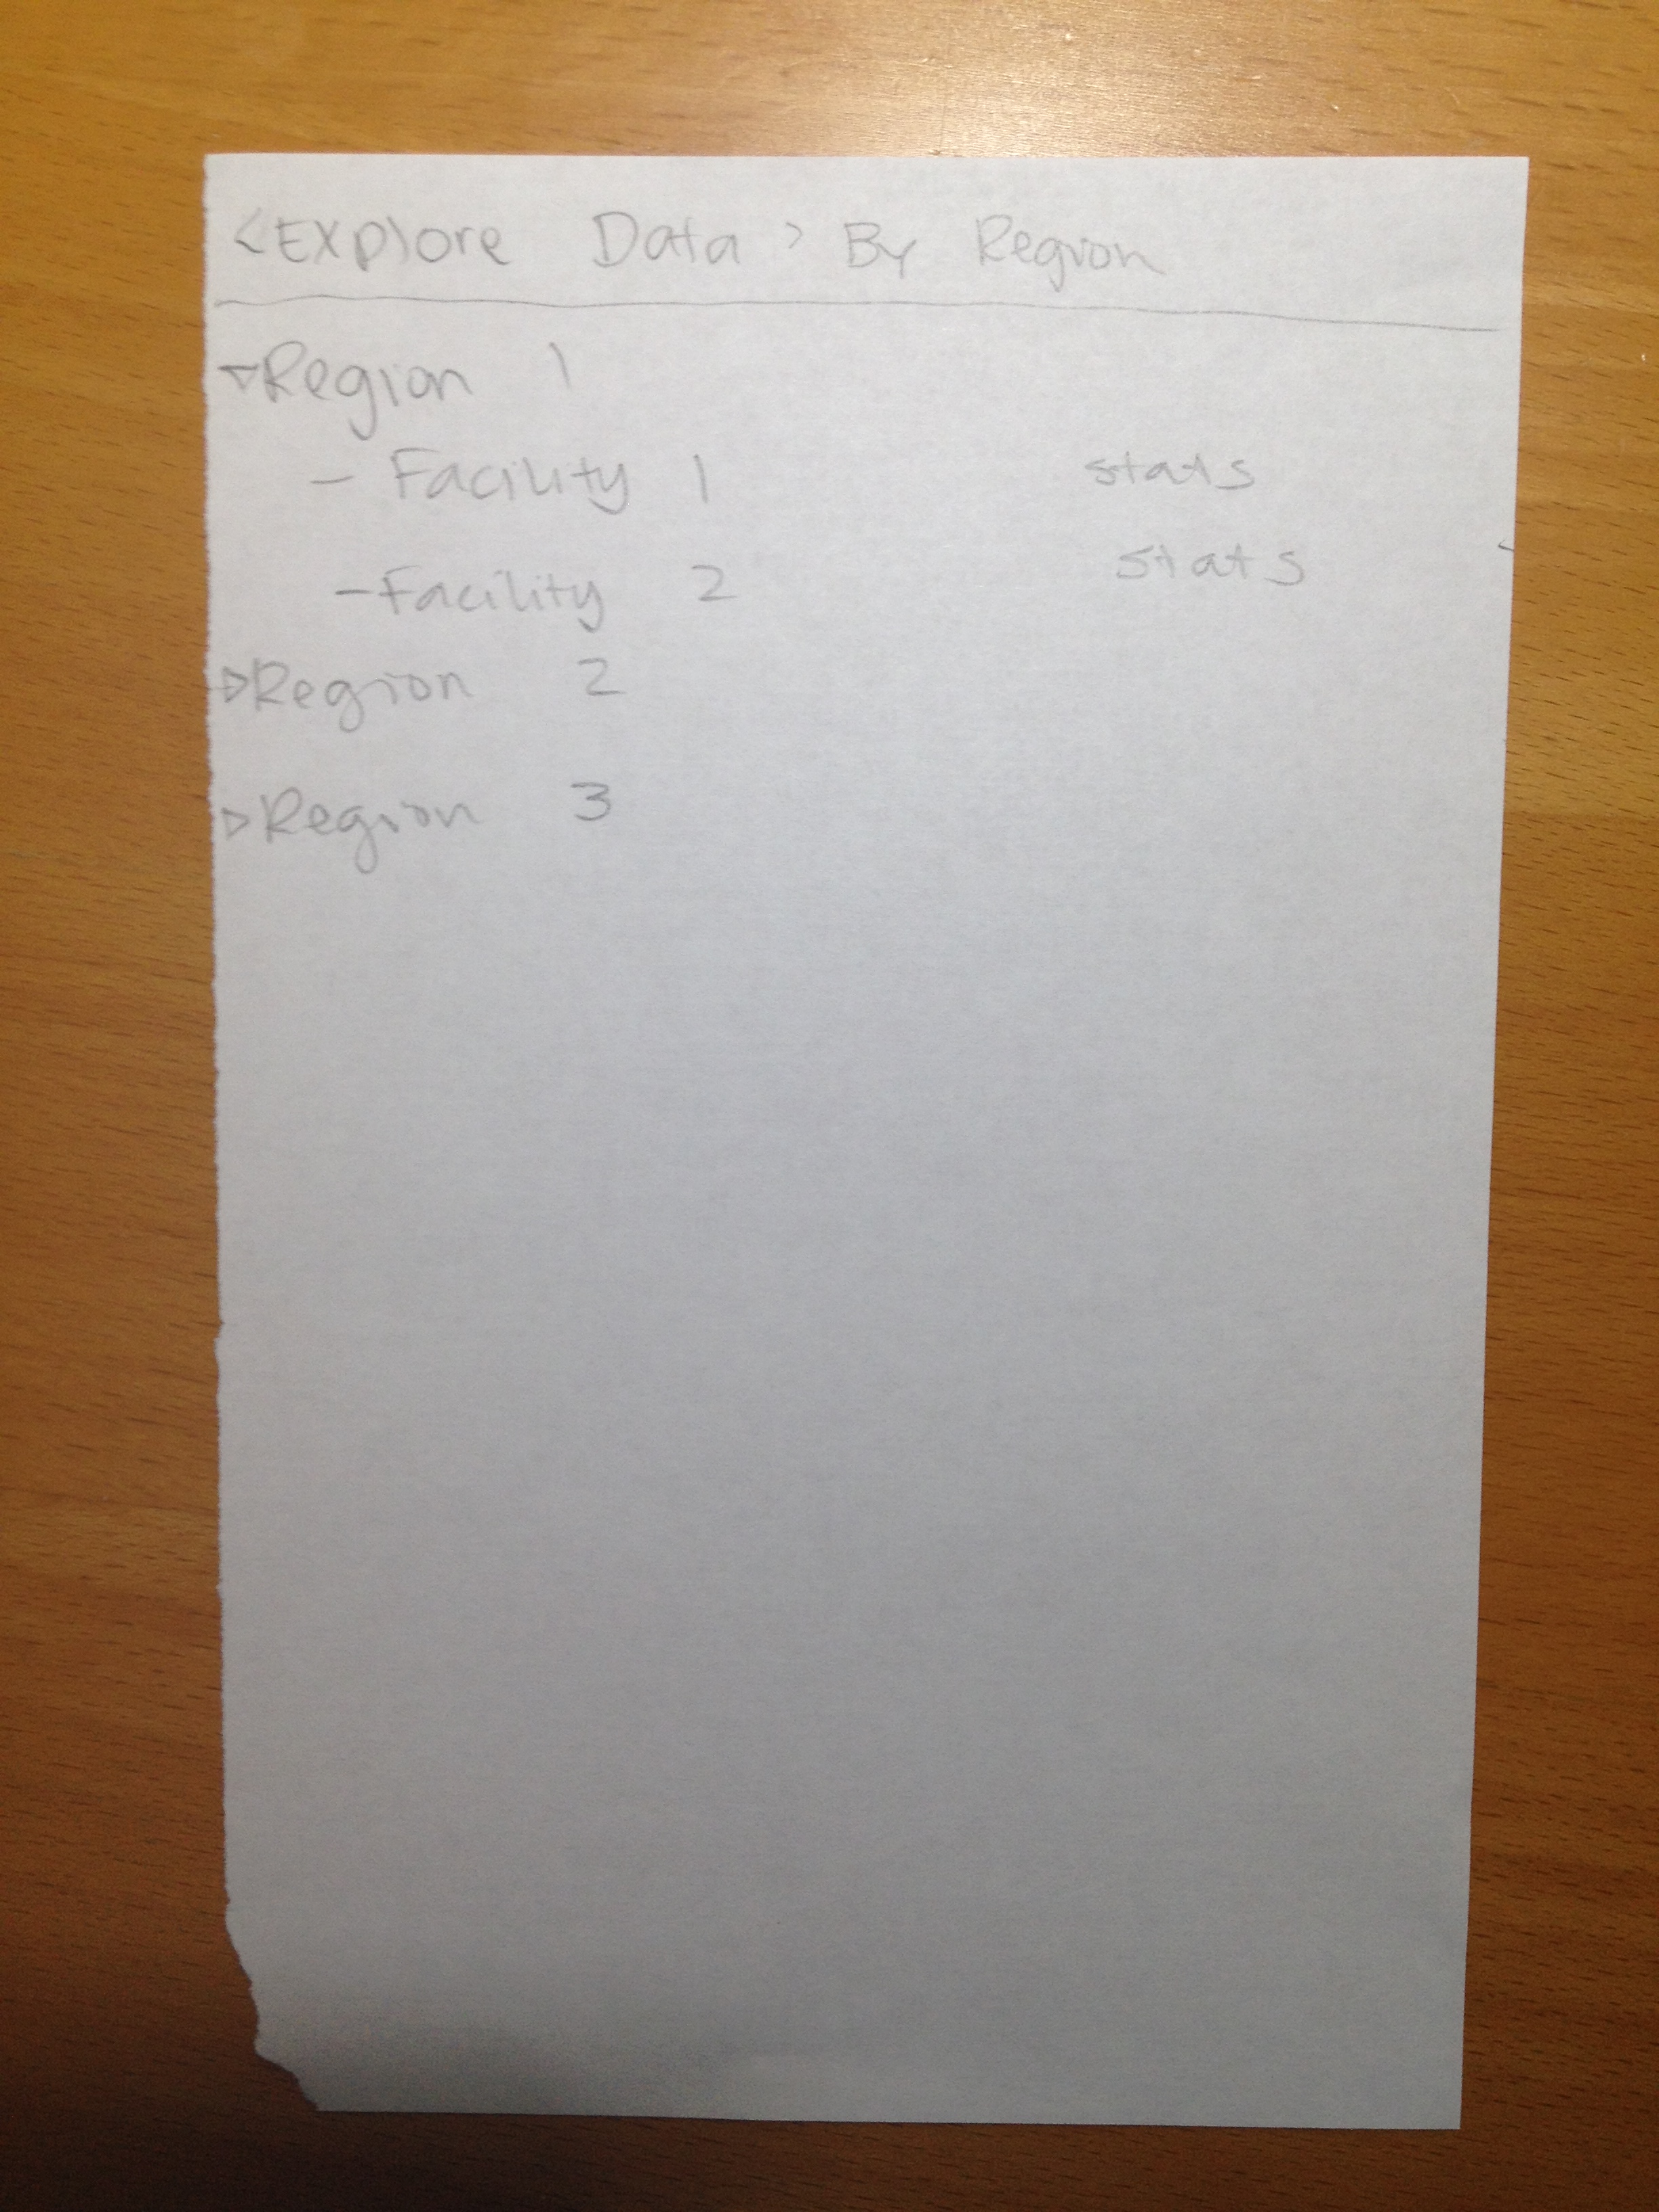 <Explore Data > By Region
▽Region 1
- Facility 1 stats
- Facility 2 stats
▷Region 2
▷Region 3